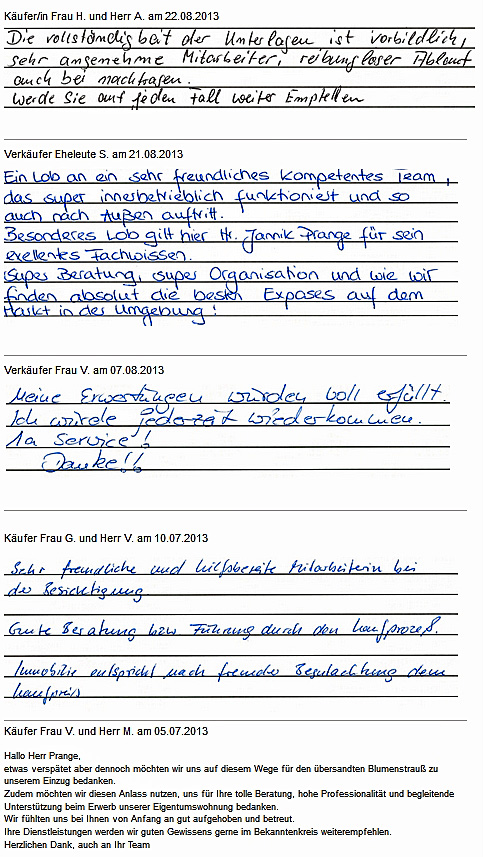 Käufer/in Frau H. und Herr A. am 22.08.2013
Die vollständigkeit der Unterlagen ist vorbildlich,
sehr angenehme Mitarbeiter, reibungsloser Ablauf
auch bei nachfragen.
Werde Sie auf jeden Fall weiter Empfehlen
Verkäufer Eheleute S. am 21.08.2013
Ein Lob an ein sehr freundliches kompetentes Team,
das super innerbetrieblich funktioniert und so
auch nach Außen auftritt.
Besonderes Lob gilt hier Hr. Jannik Prange für sein
exellentes Fachwissen.
Super Beratung, super Organisation und wie wir
finden absolut die besten Exposes auf dem
Markt in der Umgebung!
Verkäufer Frau V. am 07.08.2013
Meine Erwartungen wurden voll erfüllt.
Ich würde jederzeit wiederkommen.
1a Service!
Danke!!
Käufer Frau G. und Herr V. am 10.07.2013
Sehr freundliche und hilfsbereite Mitarbeiterin bei
der Besichtigung
Gute Beratung bzw Führung durch den Kaufprozeß.
Immobilie entspricht nach fremder Begutachtung dem
Kaufpreis
Käufer Frau V. und Herr M. am 05.07.2013
Hallo Herr Prange,
etwas verspätet aber dennoch möchten wir uns auf diesem Wege für den übersandten Blumenstrauß zu
unserem Einzug bedanken.
Zudem möchten wir diesen Anlass nutzen, uns für Ihre tolle Beratung, hohe Professionalität und begleitende
Unterstützung beim Erwerb unserer Eigentumswohnung bedanken.
Wir fühlten uns bei Ihnen von Anfang an gut aufgehoben und betreut.
Ihre Dienstleistungen werden wir guten Gewissens gerne im Bekanntenkreis weiterempfehlen.
Herzlichen Dank, auch an Ihr Team